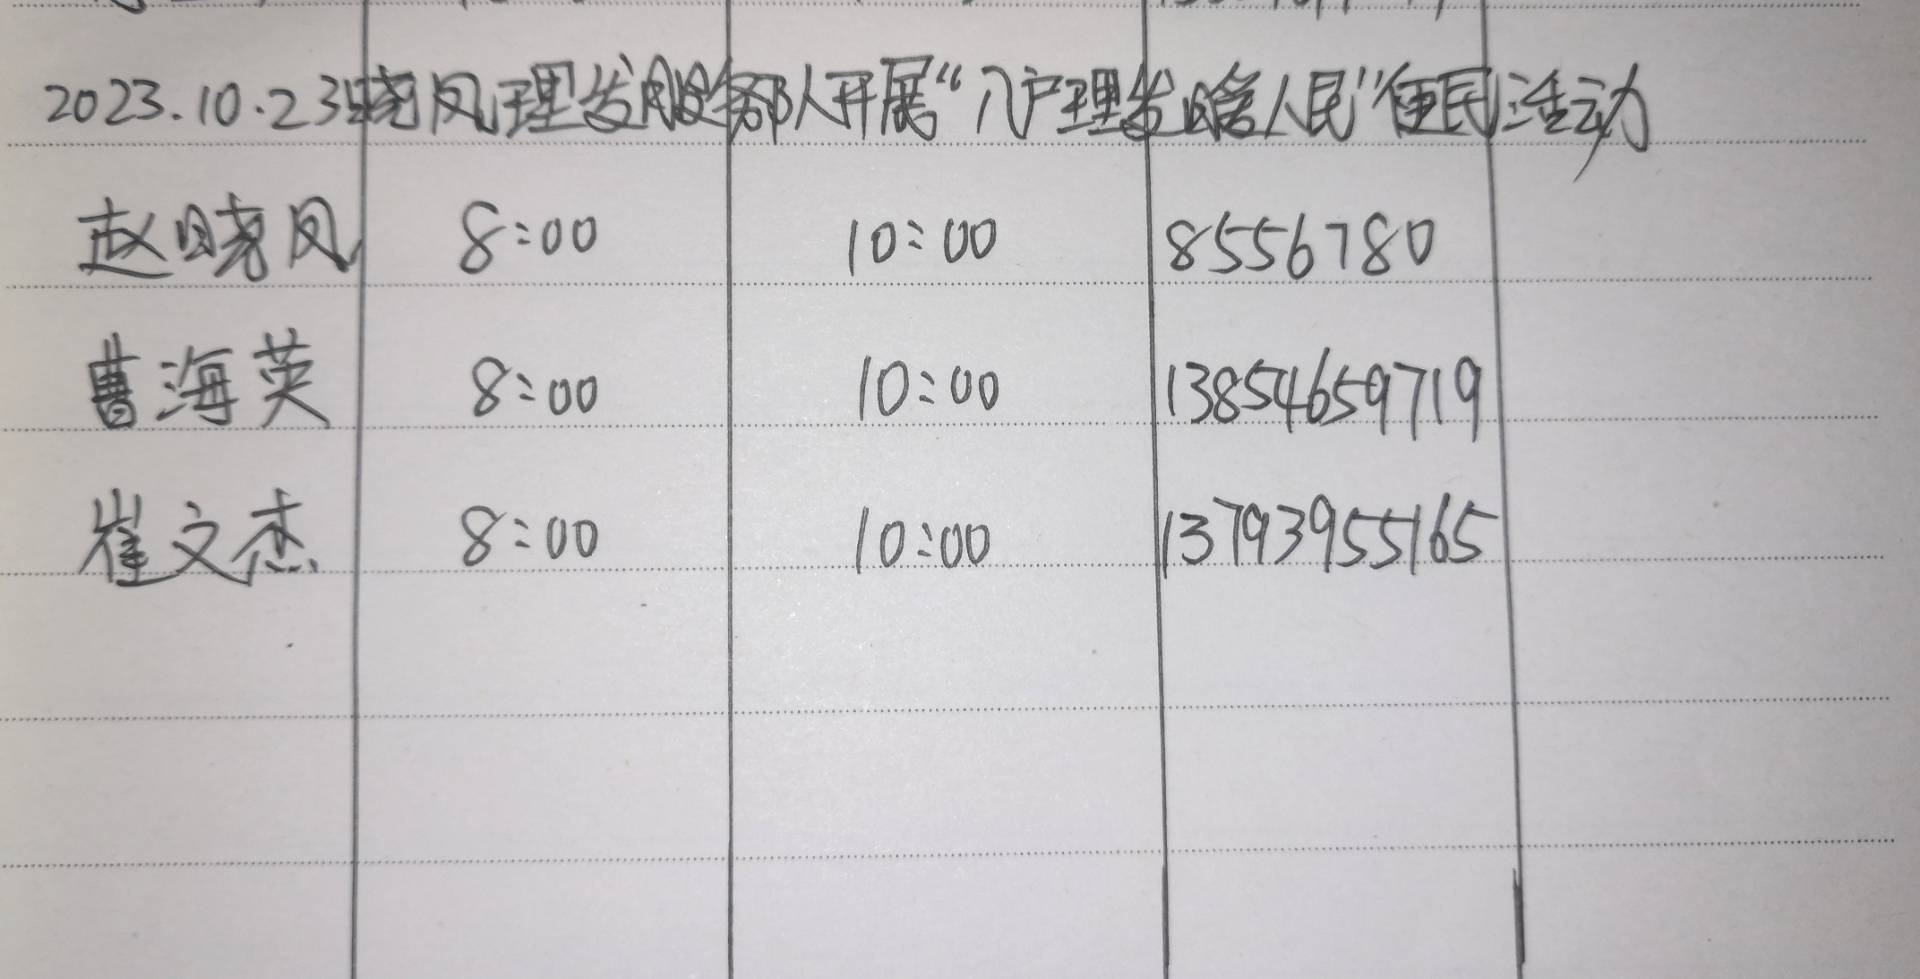 2023.10.23晓凤理发服务部人开展“入户理发暖人民”便民活动
赵晓凤 8:00 10:00 8556780
曹海英 8:00 10:00 13854659719
崔文杰 8:00 10:00 13793955165